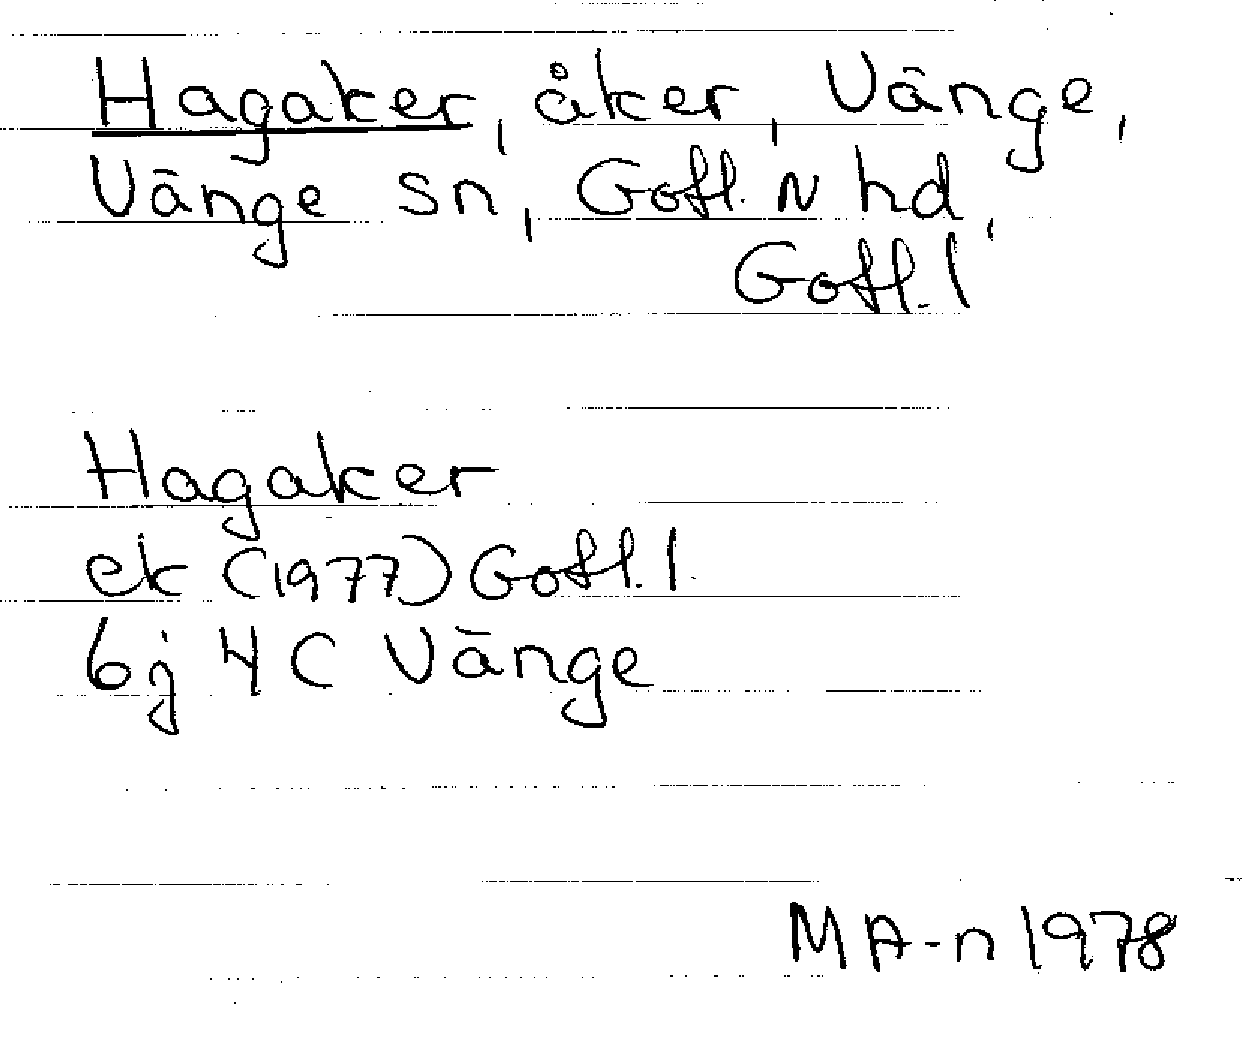 Hagaker, åker, Vänge,
Vänge sn, Gotl. N hd,
Gotl. l
Hagaker
ek (1977) Gotl. l.
6j 4 C Vänge
MA-n 1978